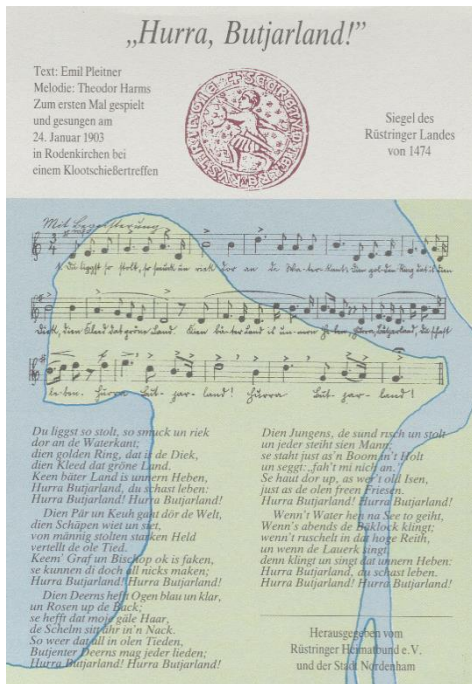 „Hurra, Butjarland!”
Text: Emil Pleitner
Melodie: Theodor Harms
Zum ersten Mal gespielt
und gesungen am
24. Januar 1903
in Rodenkirchen bei
einem Klootschießertreffen
Siegel des
Rüstringer Landes
von 1474
Mit Begeisterung
Du liggst so stolt, so smuck un riek
dor an de Waterkant;
dien golden Ring, dat is de Diek,
dien Kleed dat gröne Land.
Keen bäter Land is unnern Heben,
Hurra Butjarland, du schast leben:
Hurra Butjarland! Hurra Butjarland!
Dien Pär un Keuh gaht dör de Welt,
dien Schäpen wiet un siet,
von männig stolten starken Held
vertellt de ole Tied.
Keem' Graf un Bischop ok is faken,
se kunnen di doch all nicks maken;
Hurra Butjarland! Hurra Butjarland!
Dien Deerns hefft Ogen blau un klar,
un Rosen up de Back;
se hefft dat moje gäle Haar,
de Schelm sitt ähr in'n Nack.
So weer dat all in olen Tieden,
Butjenter Deerns mag jeder lieden;
Hurra Butjarland! Hurra Butjarland!
Dien Jungens, de sund risch un stolt
un jeder steiht sien Mann;
se staht just as'n Boom in't Holt
un seggt: „fah't mi nich an.
Se haut dor up, as wer't old Isen,
just as de olen freen Friesen.
Hurra Butjarland! Hurra Butjarland!
Wenn't Water hen na See to geiht,
Wenn's abends de Bäklock klingt;
wenn't ruschelt in dat hoge Reith,
un wenn de Lauerk singt,
denn klingt un singt dat unnern Heben:
Hurra Butjarland, du schast leben.
Hurra Butjarland! Hurra Butjarland!
Herausgegeben vom
Rüstringer Heimatbund e.V.
und der Stadt Nordenham